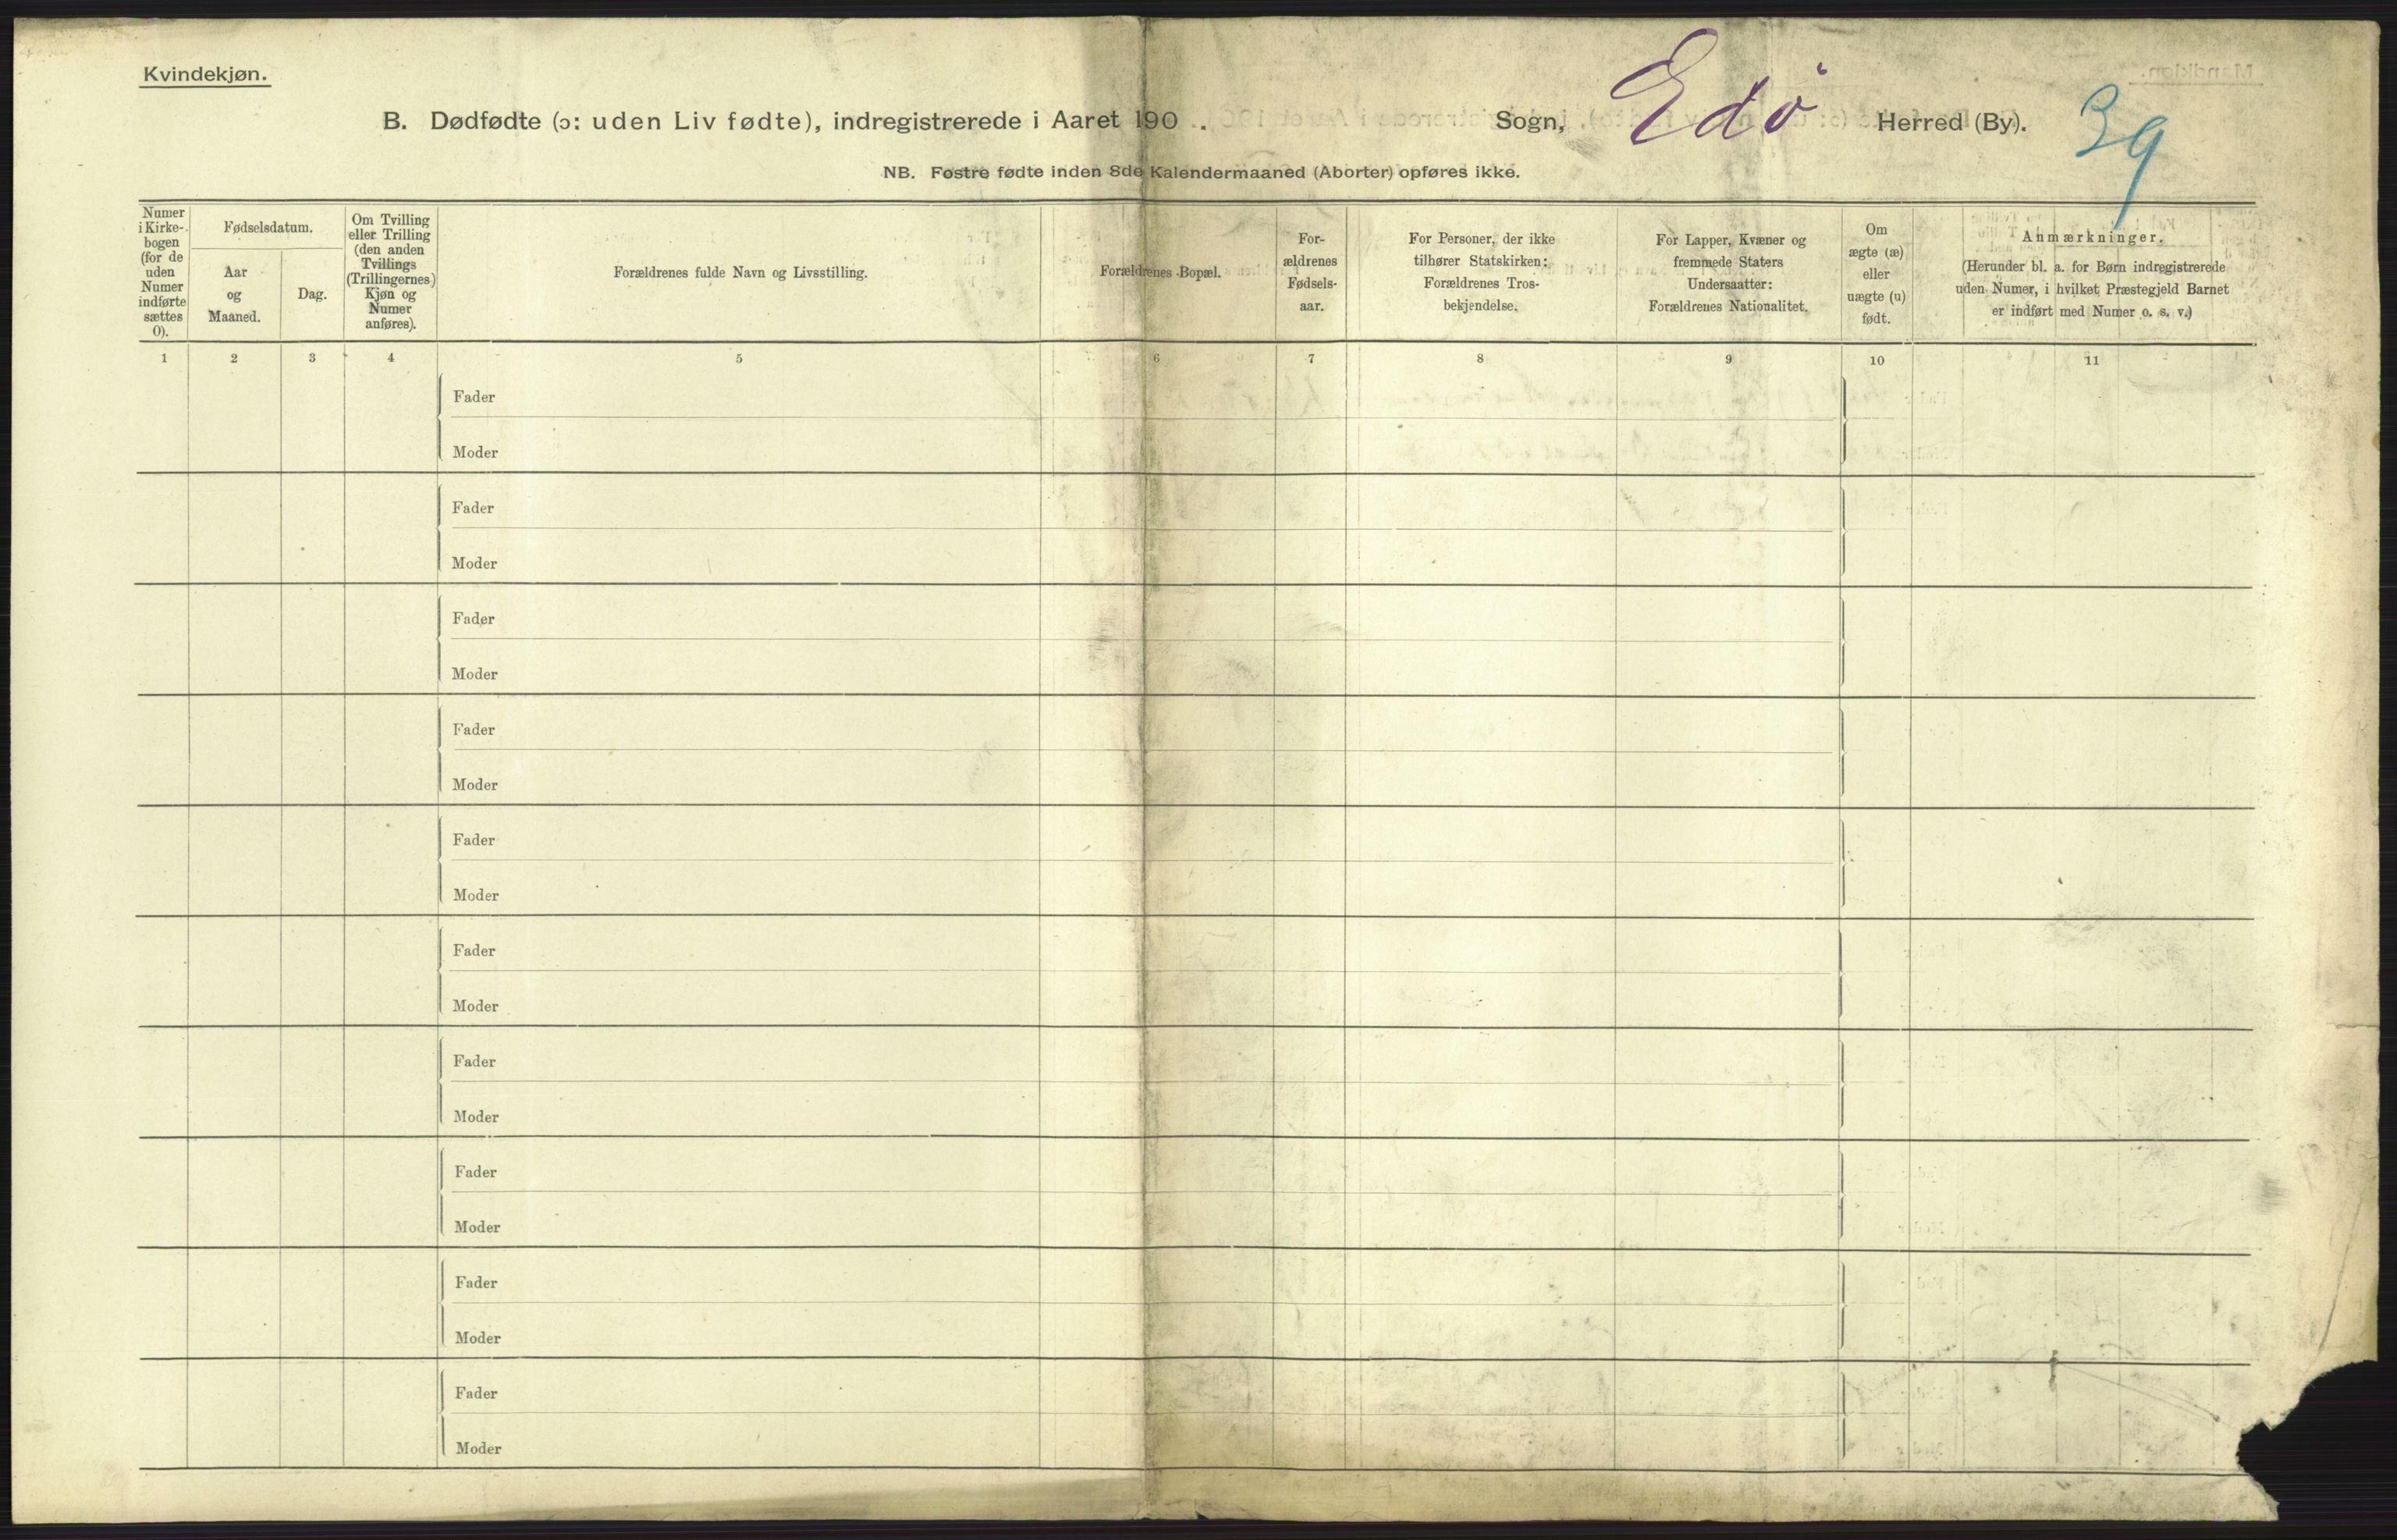 Kvindekjøn.
B. Dødfødte (ɔ: uden Liv fødte), indregistrerede i Aaret 190 . Sogn, Edö Herred (By). 39
NB. Fostre fødte inden 8de Kalendermaaned (Aborter) opføres ikke.
Numer
i Kirke-
bogen
(for de
uden
Numer
indførte
sættes
0).
Fødselsdatum.
Aar
og
Maaned.
Dag.
Om Tvilling
eller Trilling
(den anden
Tvillings
(Trillingernes)
Kjøn og
Numer
anføres).
Forældrenes fulde Navn og Livsstilling.
Forældrenes Bopæl.
For-
ældrenes
Fødsels-
aar.
For Personer, der ikke
tilhører Statskirken:
Forældrenes Tros-
bekjendelse.
For Lapper, Kvæner og
fremmede Staters
Undersaatter:
Forældrenes Nationalitet.
Om
ægte (æ)
eller
uægte (u)
født.
Anmærkninger.
(Herunder bl. a. for Børn indregistrerede
uden Numer, i hvilket Præstegjeld Barnet
er indført med Numer o. s. v.)
1 2 3 4 5 6 7 8 9 10 11
Fader
Moder
Fader
Moder
Fader
Moder
Fader
Moder
Fader
Moder
Fader
Moder
Fader
Moder
Fader
Moder
Fader
Moder
Fader
Moder